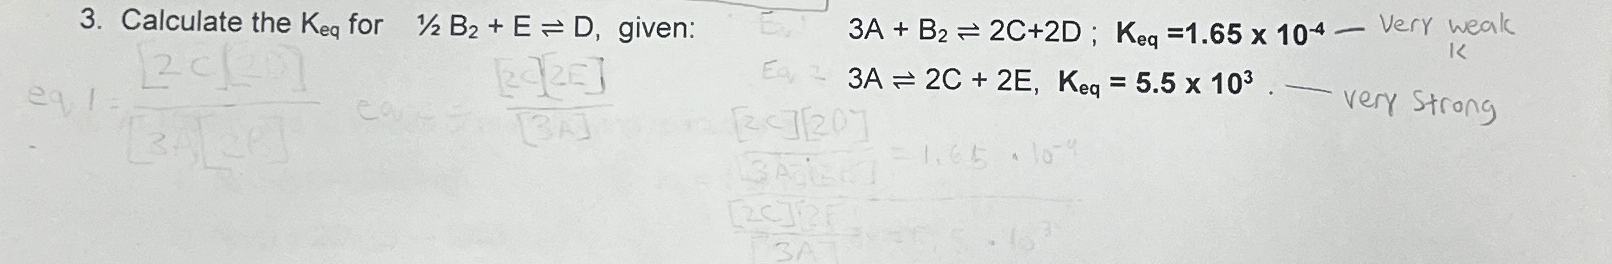 3. Calculate the Keq for ½ B₂ + E ⇌ D, given: 3A + B₂ ⇌ 2C+2D ; Keq =1.65 x 10⁻⁴ — Very weak
K
Eq 2 3A ⇌ 2C + 2E, Keq = 5.5 x 10³ . — very strong
eq 1 = [2C][2D]
[2C][2E]
[3A]
[2C][2D] = 1.65 · 10⁻⁴
[2C][2E
[3A] · 10³